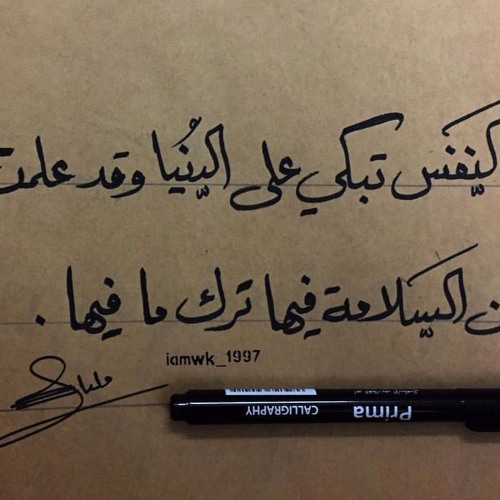 النفس تبكي على الدُّنيا وقد علمت
ن السّلامة فيها ترك ما فيها .
iamwk_1997
Prima
CALLIGRAPHY